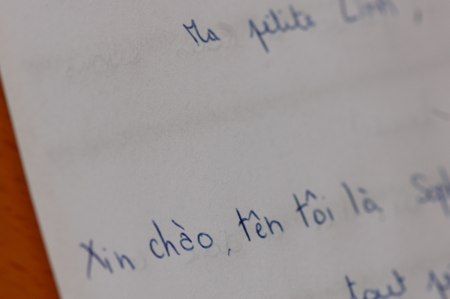 Ma petite Linh,
Xin chào, tên tôi là
tout